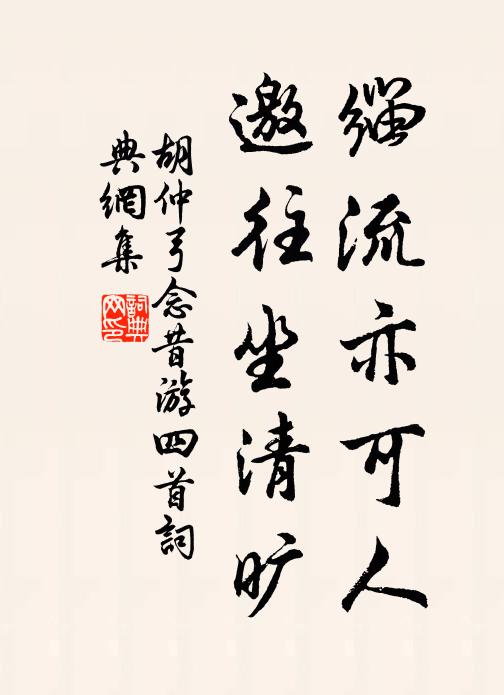 緇流亦可人
邀往坐清旷
胡仲弓念昔游四首詞
典網集
詞典
网印